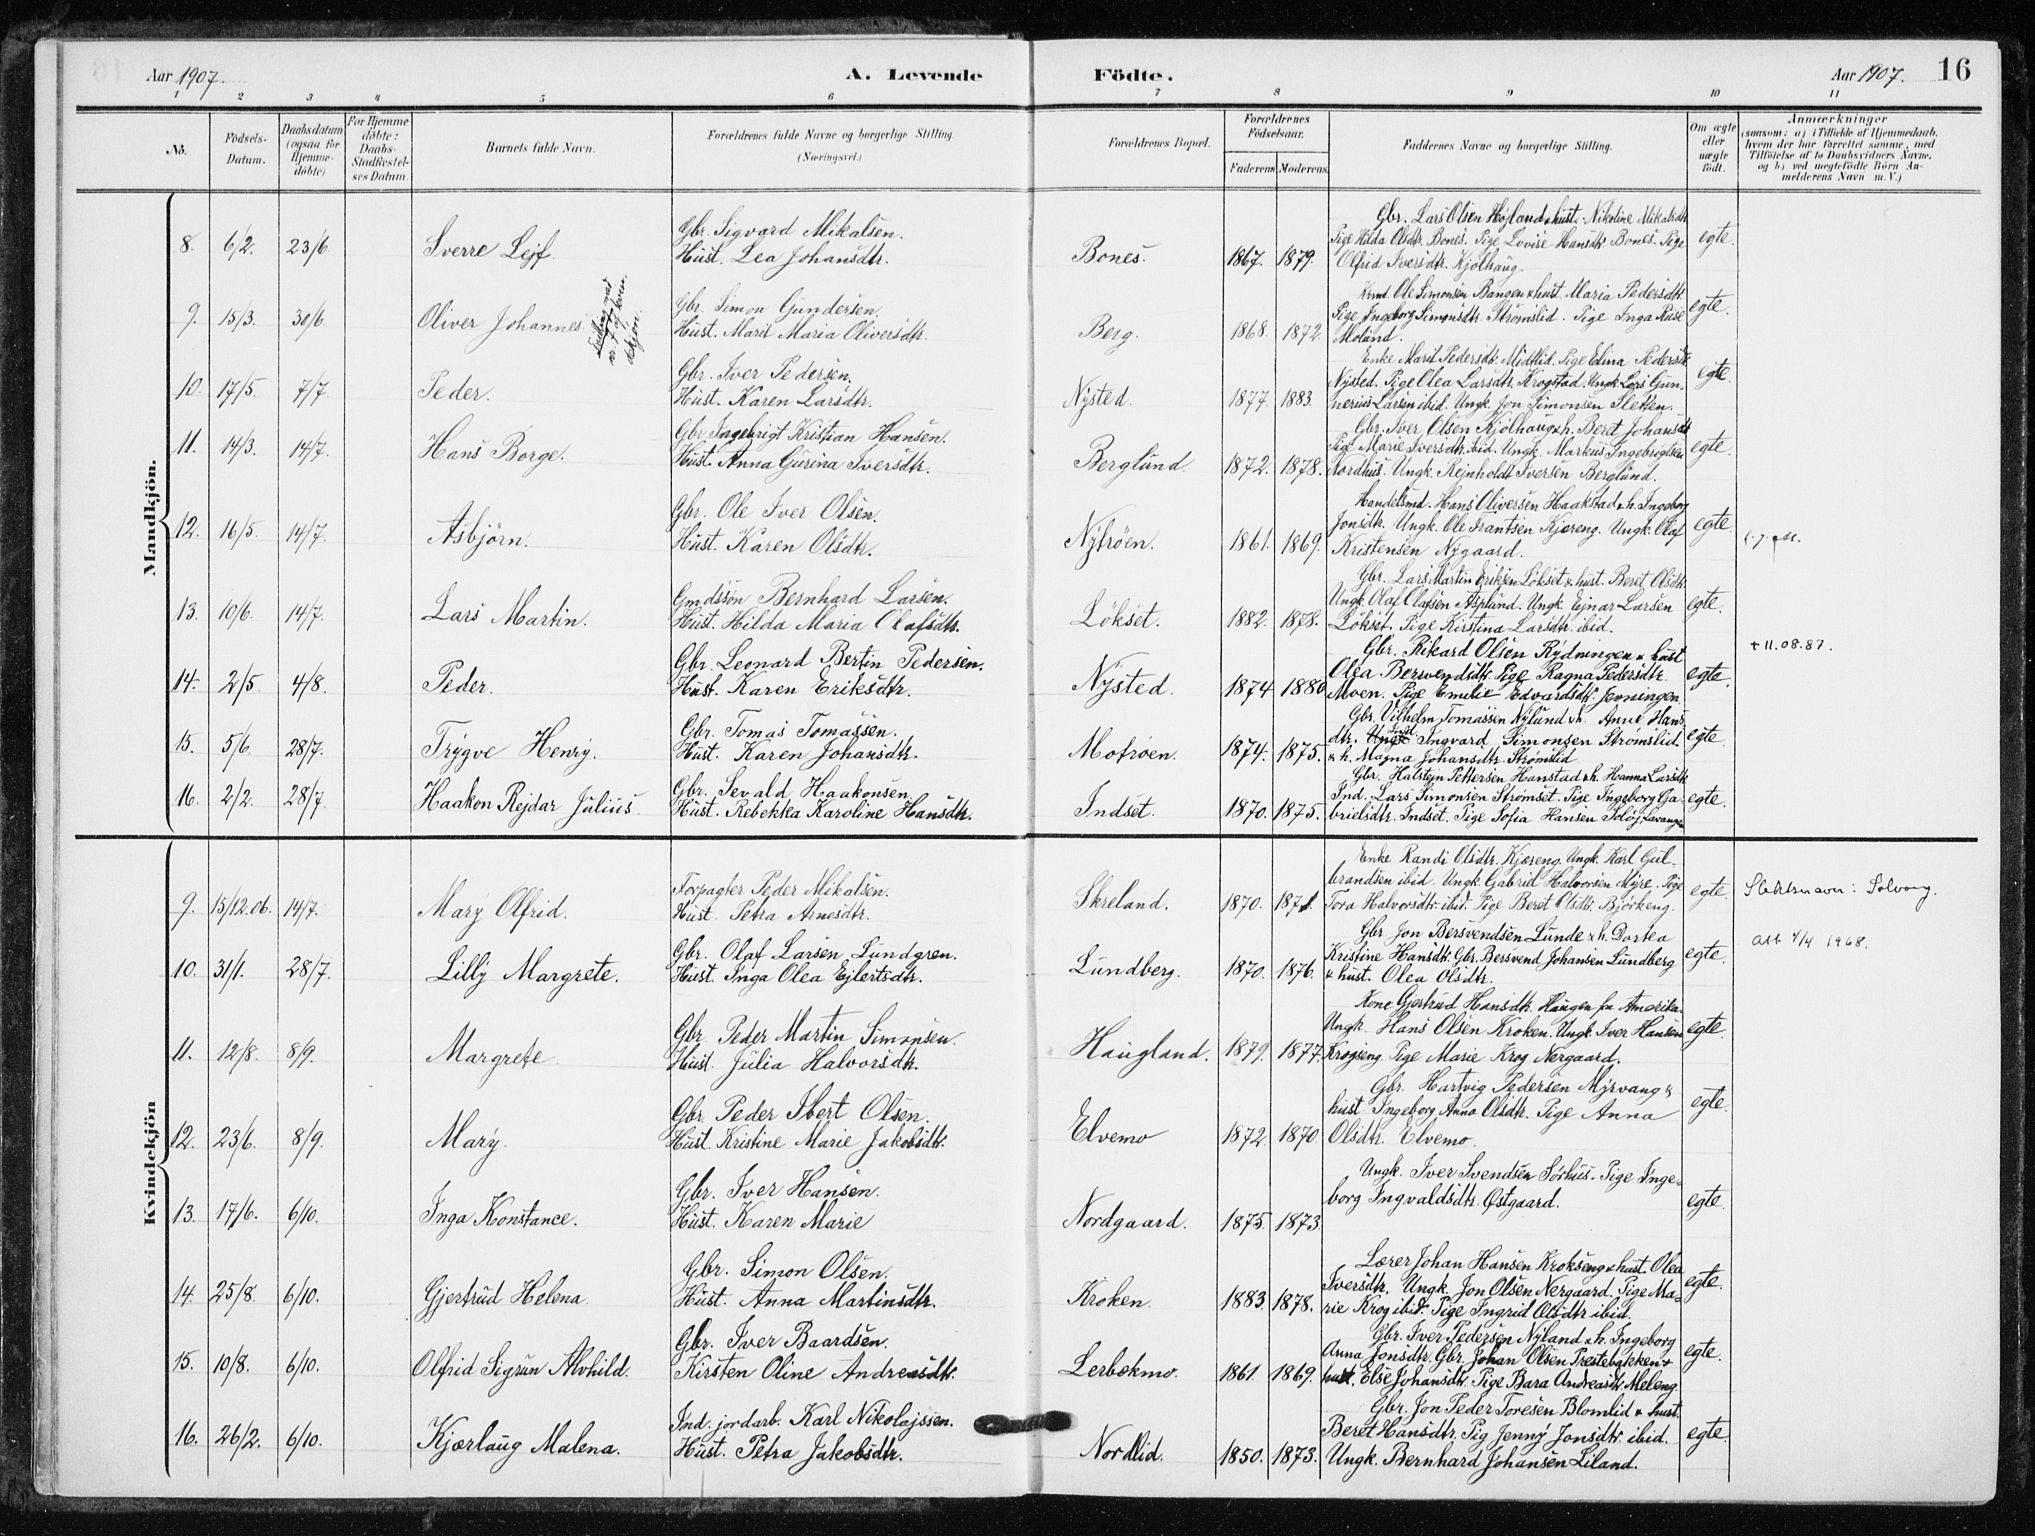 Aar 1907.
A. Levende
Födte.
Aar 1907.
16
1 2 3 4 5 6 7 8 9 10 11
No.
Födsels-Datum.
Daabsdatum (ogsaa for Hjemme-döbte)
For Hjemme döbte: Daabs-Stadfæstel-ses Datum.
Barnets fulde Navn.
Forældrenes fulde Navne og borgerlige Stilling. (Næringsvei.)
Forældrenes Bopæl.
Forældrenes Födselsaar.
Faderens. Moderens.
Faddernes Navne og borgerlige Stilling.
Om ægte eller uægte födt.
Anmærkninger
(saasom: a) i Tilfælde af Hjemmedaab, hvem der har forrettet samme, med Tilföielse af to Daabsvidners Navne, og b) ved uægtefödte Börn An-melderens Navn m. V.)
Mandkjön.
8. 6/2. 23/6 Sverre Lejf Gbr. Sigvard Mikalsen. Hust. Lea Johansdtr. Bones. 1867. 1879. Gbr. Lars Olsen Højland & hust. Nikoline Mikalsdtr. Pige Hilda Olsdtr. Bones. Pige Lovise Hansdtr. Bones. Pige Olfrid Iversdtr. Kjølhaug. egte.
9. 15/3. 30/6 Oliver Johannes Gbr. Simon Gundersen. Hust. Marit Maria Oliversdtr. Berg. 1868. 1872. Ole Simonsen Bangen & hust. Maria Pedersdtr. Pige Ingeborg Simonsdtr. Strømslid. Pige Inga Moland. egte.
10. 17/5. 7/7 Peder. Gbr. Iver Pedersen. Hust. Karen Larsdtr. Nysted. 1877. 1883. Enke Marit Pedersdtr. Midtlid. Pige Edina Pedersdtr. Nysted. Pige Olea Larsdtr. Krogstad. Ungk. Lars Gunnerius Larsen ibid. Ungk. Jon Simonsen Sletten. egte.
11. 14/3. 14/7. Hans Borge. Gbr. Ingebrigt Kristian Hansen. Hust. Anna Gurina Iversdtr. Berglund 1872. 1878. Gbr. Iver Olsen Kjølhaug & h. Beret Johansdtr. Pige Marie Iversdtr. ibid. Ungk. Markus Ingebrigtsen Nordhus. Ungk. Rejnholdt Iversen Berglund. egte.
12. 16/5. 14/7. Asbjørn. Gbr. Ole Iver Olsen. Hust. Karen Olsdtr. Nytrøen. 1861. 1869. Handelsmd. Hans Oliversen Haakstad & h. Ingeborg Jonsdtr. Ungk. Ole Frantsen Kjæreng. Ungk. Olaf Kristensen Nygaard. egte
13. 10/6. 14/7. Lars Martin. Gmdssøn Bernhard Larsen. Hust. Hilda Maria Olafsdtr. Løkset. 1882. 1878. Gbr. Lars Martin Eriksen Løkset & hust. Beret Olsdtr. Ungk. Olaf Olafsen Asplund. Ungk. Ejnar Larsen Løkset. Pige Kirstina Larsdtr. ibid. egte.
14. 2/5. 4/8. Peder. Gbr. Leonard Bertin Pedersen. Hust. Karen Eriksdtr. Nysted. 1874 1886 Gbr. Rikard Olsen Rydningen & hust Olea Bersvendsdtr. Pige Ragna Pedersdtr. Moen. Pige Emelie Edvardsdtr. Jenningen. egte. + 11.08.87.
15. 5/6. 28/7. Trygve Henry. Gbr. Tomas Tomassen. Hust. Karen Johansdtr. Motrøen 1874. 1875. Gbr. Vilhelm Tomassen Nylund & h. Anne Hansdtr. Ingvard Simonsen Strømslid & h. Magna Johansdtr. Strømslid egte.
16. 2/2. 28/7. Haakon Rejdar Julius. Gbr. Sevald Haakonsen. Hust. Rebekka Karoline Hansdtr. Indset. 1870. 1875. Gbr. Halstejn Pettersen Hanstad & h. Hanna Larsdtr. Ind. Lars Simonsen Strømset. Pige Ingeborg Gabrielsdtr. Indset. Pige Sofia Hansen egte.
Kvindekjön
9. 15/12.06. 14/7. Mary Olfrid. Forpagter Peder Mikalsen. Hust. Petra Arnesdtr. Skreland. 1870. 1871. Enke Randi Olsdtr. Kjæreng. Ungk. Karl Gulbrandsen ibid. Ungk. Gabriel Halvorsen Myre. Pige Tora Halvorsdtr. ibid. Pige Beret Olsdtr. Bjørkeng. egte. Slektsnavn: Solvang.
10. 31/1. 28/7. Lilly Margrete. Gbr. Olaf Larsen Lundgren. Hust. Inga Olea Ejlertsdtr. Lundberg. 1870. 1876. Gbr. Jon Bersvendsen Lunde & h. Dortea Kristine Hansdtr. Gbr. Bersvend Johansen Lundberg & hust. Olea Olsdtr. egte. 4/4 1968.
11. 12/8. 8/9. Margrete Gbr. Peder Martin Simonsen. Hust. Julia Halvorsdtr. Haugland. 1879. 1877. Kone Gjertrud Hansdtr. Haugen fra Amerika. Ungk. Hans Olsen Kroken. Ungk. Iver Hansen Krogseng. Pige Marie Krog Nergaard. egte
12. 23/6. 8/9. Mary. Gbr. Peder Ibert Olsen. Hust. Kristine Marie Jakobsdtr. Elvemo 1872. 1870 Gbr. Hartvig Pedersen Myrvang & hust. Ingeborg Anna Olsdtr. Pige Anna Olsdtr. Elvemo. egte.
13. 17/6. 6/10. Inga Konstance. Gbr. Iver Hansen. Hust. Karen Marie Nordgaard. 1875. 1873. Ungk. Iver Svendsen Sørhus. Pige Ingeborg Ingvaldsdtr. Østgaard. egte.
14. 25/8. 6/10. Gjertrud Helena. Gbr. Simon Olsen. Hust. Anna Martinsdtr. Kroken. 1883. 1878. Lærer Johan Hansen Krokseng & hust. Olea Iversdtr. Ungk. Jon Olsen Nergaard. Pige Marie Krog ibid. Pige Ingrid Olsdtr. ibid. egte.
15. 10/8. 6/10. Olfrid Sigrun Alvhild. Gbr. Iver Baardsen. Kirsten Oline Andreasdtr. Lerbekmo. 1861. 1869. Gbr. Iver Pedersen Nyland & h. Ingeborg Anna Jonsdtr. Gbr. Johan Olsen Prestebakken & hust. Else Johansdtr. Pige Bara Andreasdtr. Meleng. egte.
16. 26/2. 6/10. Kjærlaug Malena. Ind. jordarb. Karl Nikolajssen. Hust. Petra Jakobsdtr. Nordlid. 1850. 1873. Gbr. Jon Peder Toresen Blomlid & hust. Beret Hansdtr. Pig Jenny Jonsdtr. ibid. Ungk. Bernhard Johansen Liland. egte.